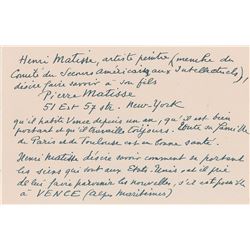 Henri Matisse, artiste peintre (membre du
Comité du Secours Américain aux Intellectuels),
désire faire savoir à son fils
Pierre Matisse
51 Est 57 str. New-York
qu'il habite Vence depuis un an, qu'il est bien
portant et qu'il travaille toujours. Toute sa famille
de Paris et de Toulouse est en bonne santé.
Henri Matisse désire savoir comment se portent
les siens qui sont aux Etats-Unis et il prie
de lui faire parvenir les nouvelles, s'il est possible
à VENCE (Alpes Maritimes)